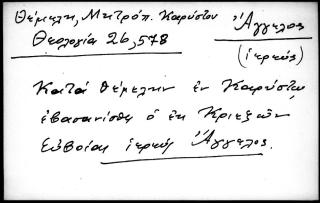 Θέμελη, Μητρόπ. Καρύστου
Θεολογία 26,578
Ἄγγελος
(ἱερεύς)
Κατά Θέμελην ἐν Καρύστῳ
ἐβασανίσθη ὁ ἐκ Κριεζῶν
Εὐβοίας ἱερεύς Ἄγγελος.